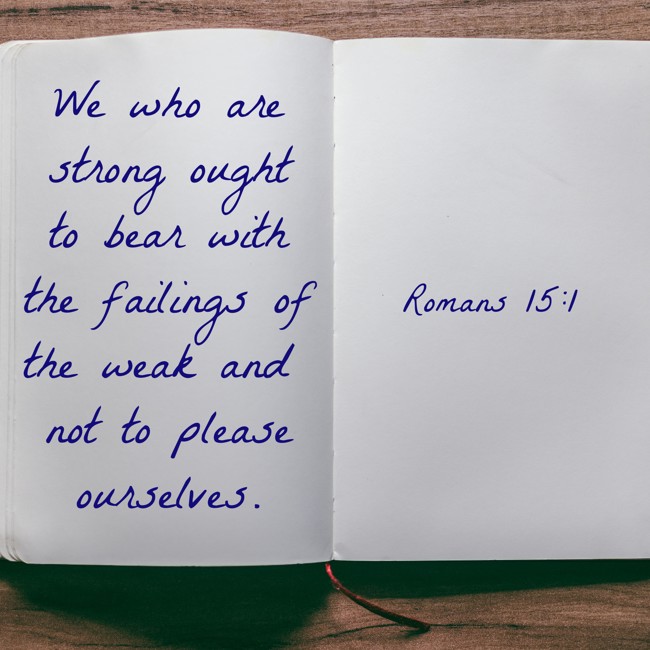 We who are
strong ought
to bear with
the failings of
the weak and
not to please
ourselves.
Romans 15:1